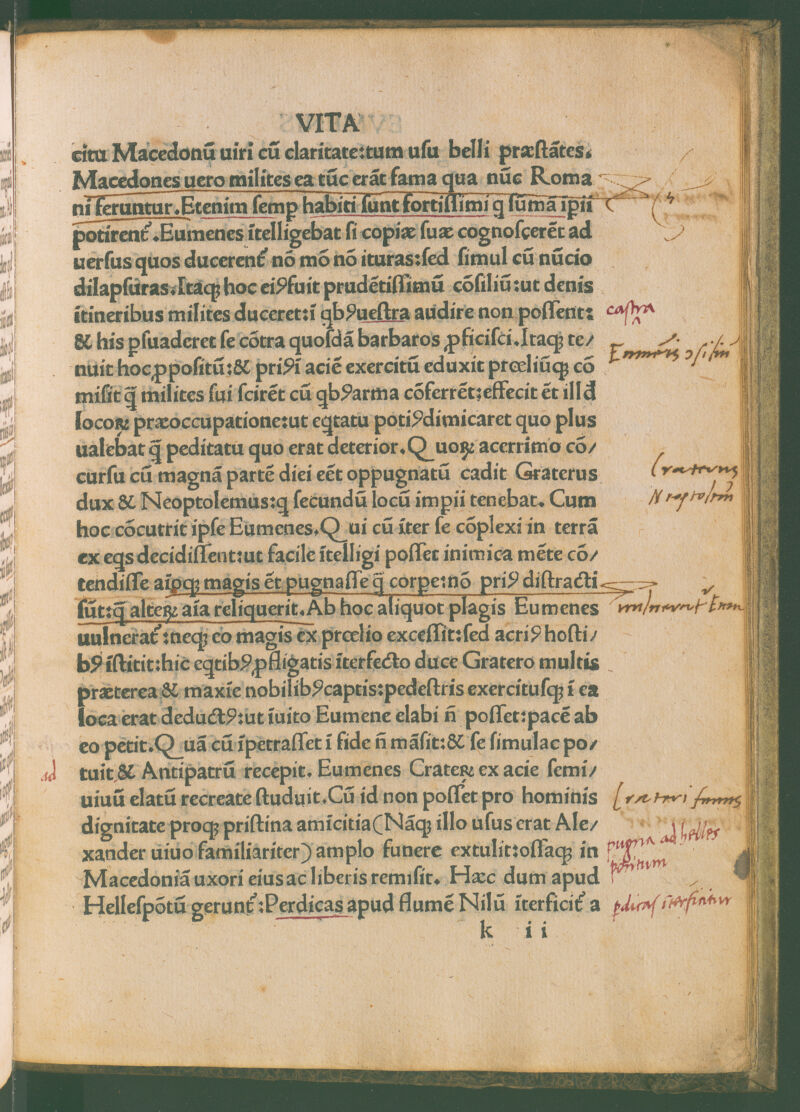 VITA
citu Macedonū uiri cū claritate:tum uſu belli præſtātes.
Macedones uero milites ea tūc erāt fama qua nūc Roma
ni feruntur.Etenim ſemp habiti ſunt fortiſſimi q ſūmā ipii
potirent᷑.Eumenes ītelligebat ſi copiæ ſuæ cognoſcerēt ad
uerſus quos ducerent᷑ nō mō nō ituras:ſed ſimul cū nūcio
dilapſūras.Itaqꝫ hoc eiꝰfuit prudētiſſimū cōſiliū:ut denis
ītineribus milites duceret:ī qbꝰueſtra audire non poſſent:
castra
& his pſuaderet ſe cōtra quoſdā barbaros ꝓficiſci.Itaqꝫ te/
nuit hoc ꝓpoſitū:& priꝰī aciē exercitū eduxit prœliūqꝫ cō
miſit q̄ milites ſui ſcirēt cū qbꝰarma cōferrēt:effecit ēt illđ
locoꝝ præoccupatione:ut eqtatu potiꝰdimicaret quo plus
ualebat q̄ peditatu quo erat deterior.Quoꝝ acerrimo cō/
curſu cū magnā partē diei eēt oppugnatū cadit Graterus
Craterus
dux & Neoptolemus:q ſecundū locū impii tenebat. Cum
hoc cōcutrit ipſe Eumenes.Qui cū īter ſe cōplexi in terrā
ex eqs decidiſſent:ut facile ītelligi poſſet inimica mēte cō/
tendiſſe aīpqꝫ magis ēt pugnaſſe q̄ corpe:nō priꝰ diſtracti
ſūt:q̄ alteꝝ aīa reliquerit.Ab hoc aliquot plagis Eumenes
uulnerat᷑:neqꝫ eo magis ex prœlio exceſſit:ſed acriꝰ hoſti/
bꝰ īſtitit:hic eqtibꝰꝓfligatis īterfecto duce Gratero multis
præterea & maxīe nobilibꝰcaptis:pedeſtris exercituſqꝫ ī ea
loca erat deductꝰ:ut īuito Eumene elabi n̄ poſſet:pacē ab
eo petit.Quā cū īpetraſſet ī fide n̄ māſit:& ſe ſimulac po/
ad
tuit & Antipatrū recepit. Eumenes Crateꝝ ex acie ſemi/
uiuū elatū recreate ſtuduit.Cū id non poſſet pro hominis
Crateri funus
dignitate proqꝫ priſtina amicitia(Nāqꝫ illo uſus erat Ale/
xander uiuo familiariter)amplo funere extulit:oſſaqꝫ in
pugna ad helles
pontum
Macedoniā uxori eius ac liberis remiſit. Hæc dum apud
Helleſpōtū gerunt᷑:Perdicas apud flumē Nilū īterficit᷑ a
k ii